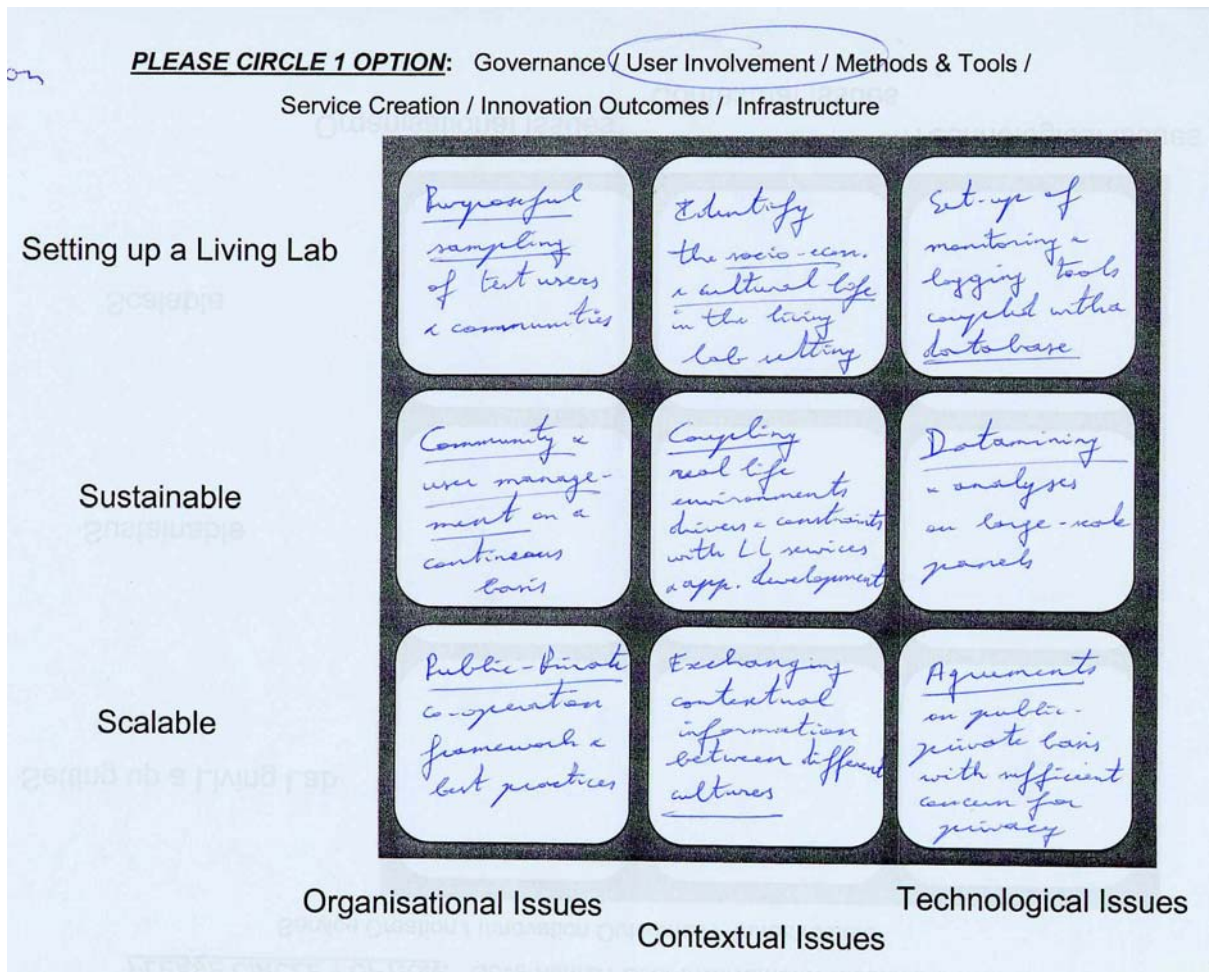 on
PLEASE CIRCLE 1 OPTION: Governance / User Involvement / Methods & Tools /
Service Creation / Innovation Outcomes / Infrastructure
Setting up a Living Lab
Purposeful
sampling
of test users
& communities
Identify
the socio-econ.
& cultural life
in the living
lab setting
Set-up of
monitoring &
logging tools
coupled with a
database
Sustainable
Community &
user manage-
ment on a
continuous
basis
Coupling
real life
environments
drivers & constraints
with LL services
& app. development
Datamining
& analyses
on large-scale
panels
Scalable
Public-Private
co-operation
framework &
best practices
Exchanging
contextual
information
between different
cultures
Agreements
on public-
private basis
with sufficient
concern for
privacy
Organisational Issues
Contextual Issues
Technological Issues